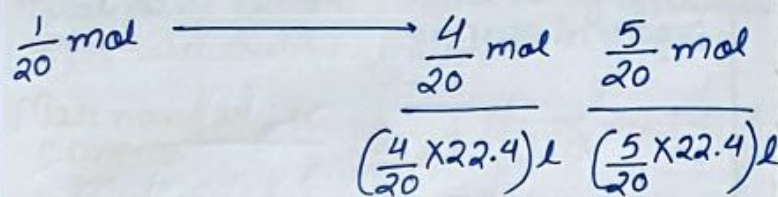 1/20 mol ⟶ 4/20 mol 5/20 mol
(4/20 × 22.4) l (5/20 × 22.4) l